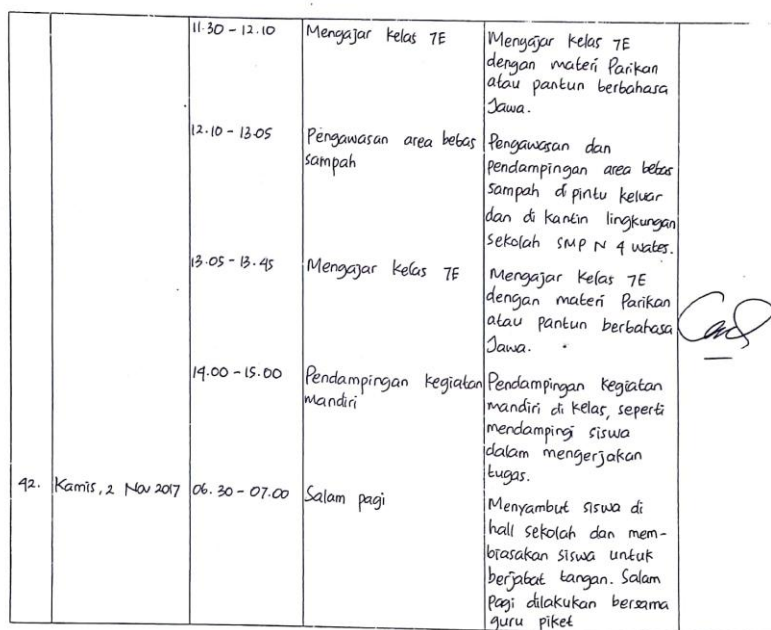 11.30 - 12.10 Mengajar kelas 7E Mengajar kelas 7E
dengan materi Parikan
atau pantun berbahasa
Jawa.
12.10 - 13.05 Pengawasan area bebas Pengawasan dan
sampah pendampingan area bebas
sampah di pintu keluar
dan di kantin lingkungan
sekolah SMP N 4 wates.
13.05 - 13.45 Mengajar kelas 7E Mengajar kelas 7E
dengan materi Parikan
atau pantun berbahasa
Jawa.
14.00 - 15.00 Pendampingan kegiatan Pendampingan kegiatan
mandiri mandiri di kelas, seperti
mendampingi siswa
dalam mengerjakan
tugas.
42. Kamis, 2 Nov 2017 06.30 - 07.00 Salam pagi Menyambut siswa di
hall sekolah dan mem-
biasakan siswa untuk
berjabat tangan. Salam
Pagi dilakukan bersama
guru piket